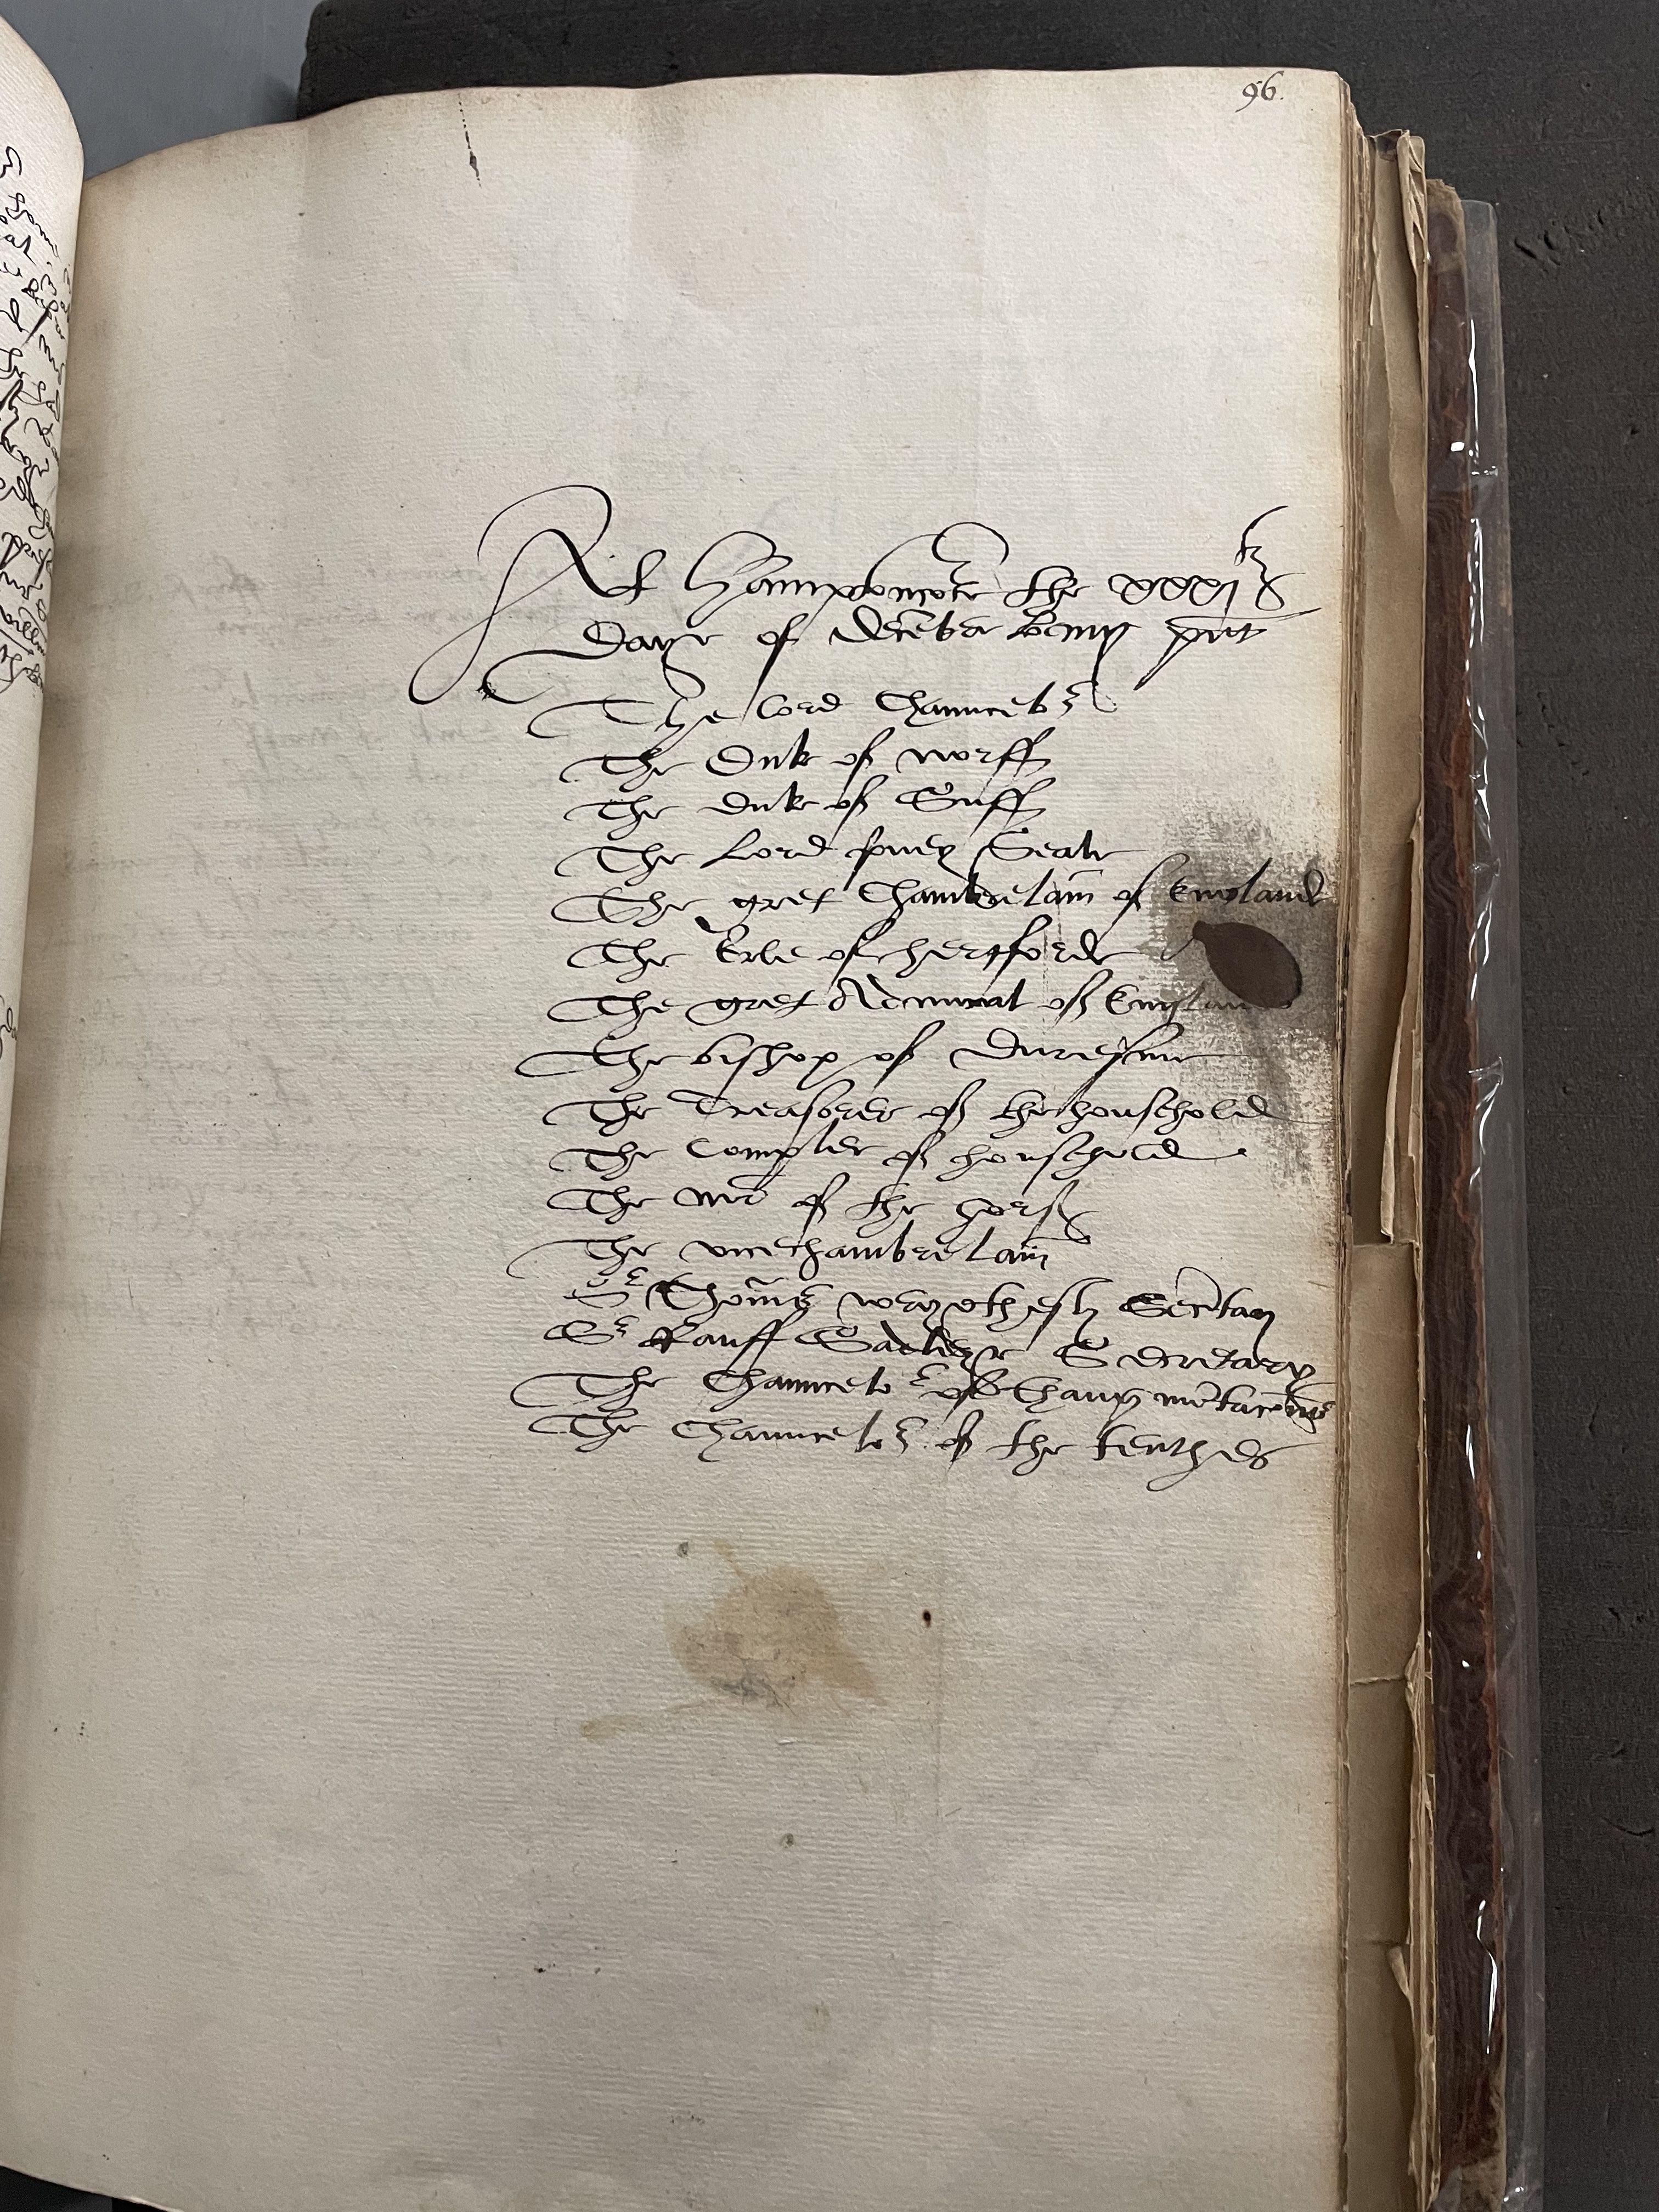 96.
At Hamptoncorte the xxxjth
Daye of decēber being pnt
The lord Chauncelor
The Duk of norff
The duk of Suff
The Lord privey Seale
The gret Chambrelain of England
The Erle of hertforde
The gret Admiral of England
The bishop of Duresme
The Treasorer of the houshold
The Compter of houshold
The mr of the hors
The vicechambrelain
Sr Thoms wryothesly Secrtary
Sr Rauff Sadleyr Secretary
The Chauncelor of thaugmētacōns
The Chauncelor of the tenthes